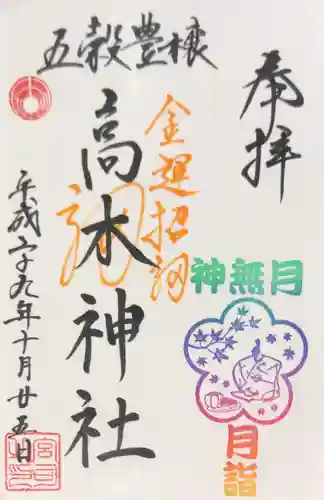 奉拝
五穀豊穣
金運招福
高木神社
神無月
月詣
平成二十九年十月廿五日